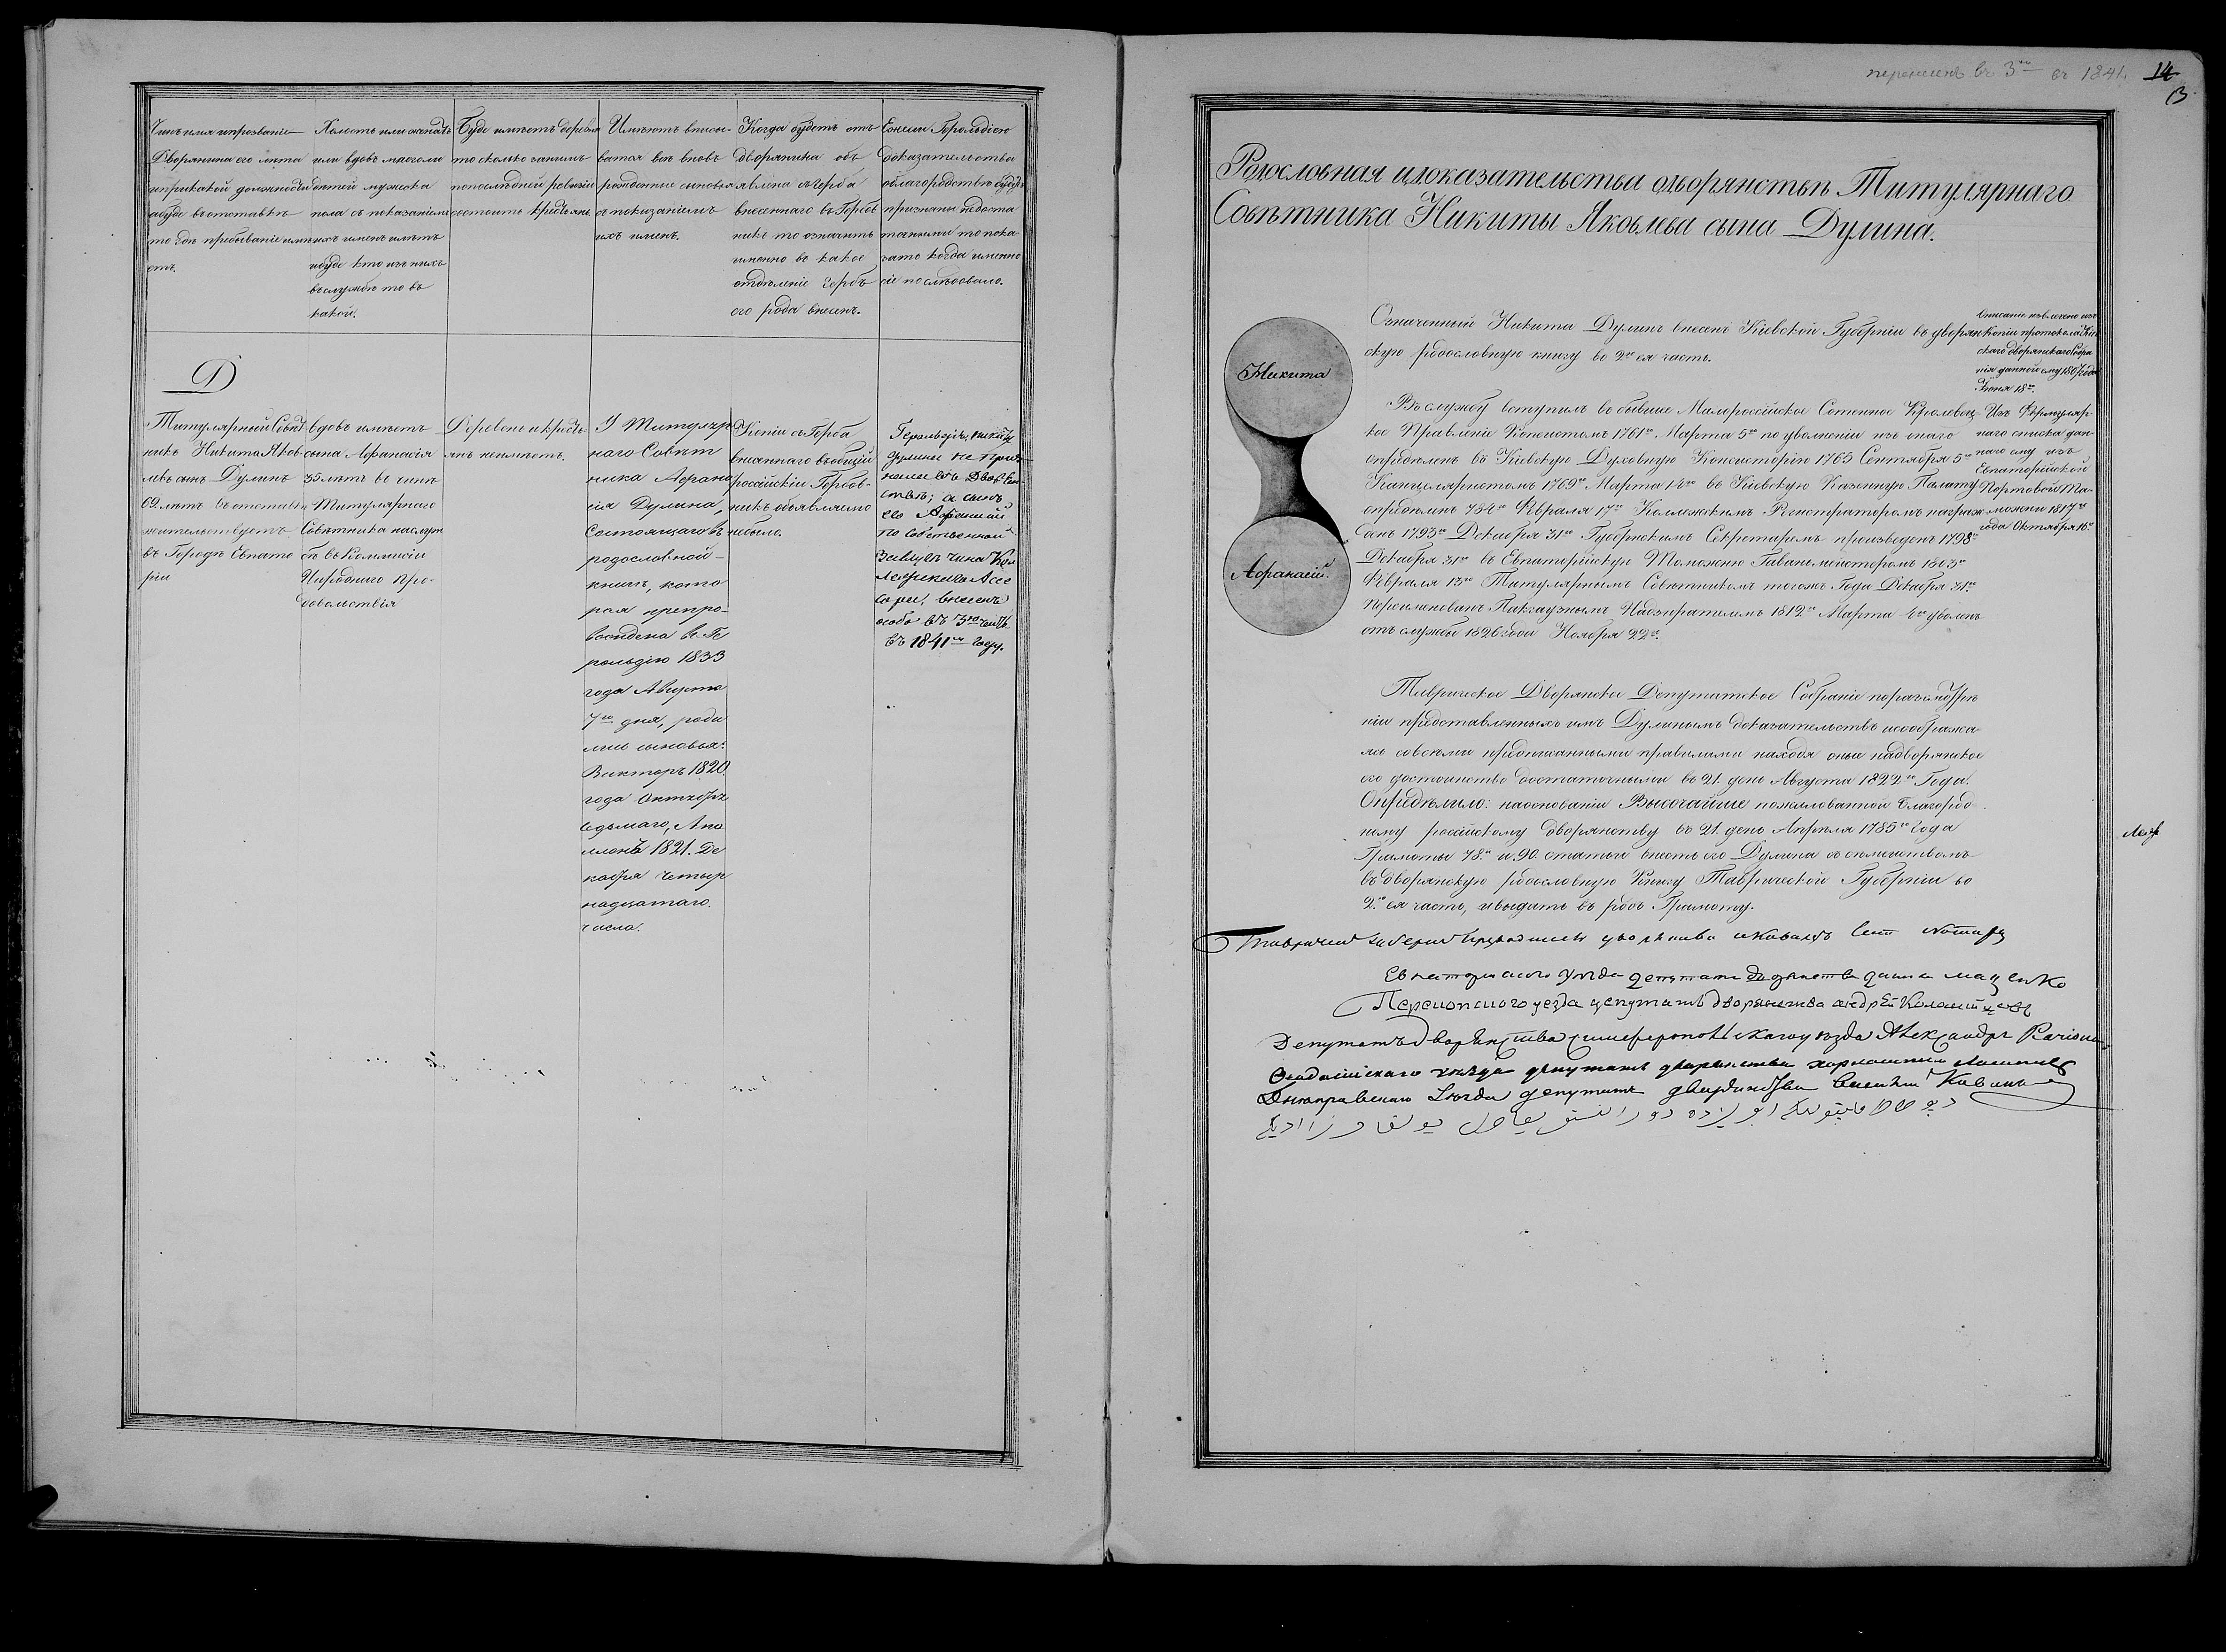 Чинъ имя ипрозваніе
Дворянина его лѣта
иприкакой должности
абуде вотставкѣ
то гдѣ пребываніе имѣ
етъ.
Холостъ или женатъ
или вдовъ имноголи
дѣтей мужеска
пола съ показаніемъ
ихъ именъ имѣтъ
ибуде кто изъ нихъ
вслужбѣ то въ
какой.
Буде имѣетъ деревни
то сколько занимъ
попослѣдней ревизіи
состоитъ крестьянъ
Имѣютъ вписы-
ватся всѣ вновь
рожденные сыновья
съ показаніемъ
ихъ именъ.
Когда будетъ отъ
дворянина объ
явлена съ Герба
внесеннаго въ Гербов
никъ то означить
именно во какое
отдѣленіе Гербъ
его рода внесенъ.
Если Герольдіею
доказательства
облагородствѣ будутъ
признаны недоста
точными то пока
зать когда именно
сіе послѣдовало.
Д
Титулярный Совѣт
никъ Никита Яков
левъ сынъ Дулинъ
69 лѣтъ въ отставкѣ
жительствуетъ
въ Городѣ Евпато
ріи
вдовъ имѣетъ
сына Афанасія
35 лѣтъ въ чинѣ
Титулярнаго
Совѣтника
въ Коммисіи
Народнаго Про-
довольствія
Деревень икресть
янъ неимѣетъ.
У Титуляр
наго Совѣт
ника Афана
сія Дулина,
Состоящаго въ
родословной
книгѣ, кото
рая препро-
вождена въ Ге
рольдію 1833
года Августа
7го дня, роди
лись сыновья:
Викторъ 1820
года Октября
седьмаго, Апо
лонъ 1821. Де
кабря четыр
надцатаго
числа.
Копіи съ Герба
внесеннаго вообщій
россійскій Гербов-
никъ объявляемо
небыло.
Герольдія, Никиту
Дулина не приз-
нала въ Дворян
ствѣ; а сынъ
его Афанасій
по собственной
Чина Кол
лежскаго Асе
сора, внесенъ
особо въ 3ю часть
въ 1841мъ году.
перенесенъ въ 3ю въ 1841. 14
13
Родословная идоказательства одворянствѣ Титулярнаго
Совѣтника Никиты Яковлева сына Дулина.
Никита
Афанасій.
Означенный Никита Дулинъ внесенъ Кіевской Губерніи въ дворян
скую родословную книгу во 2ю ея часть.
Описаніе извлечено изъ
Копіи протокола Кіев
скаго дворянскаго Собра
нія данной ему 1807 года
Іюня 18го.
Вслужбу вступилъ въ бывшее Малороссійское Сотенное Кролевец-
кое Правленіе Копеистомъ 1761го Марта 5го по уволненіи изъ онаго
опредѣленъ въ Кіевскую Духовную Консисторію 1765 Сентября 5го
Канцеляристомъ 1769го Марта въ Кіевскую Казенную Палату
опредѣленъ Февраля 17го Колежскимъ Регистраторомъ награж
денъ 1795го Декабря 31го Губернскимъ Секретаремъ произведенъ 1798го
Декабря 31го въ Евпаторійскую Таможню Гаванмейстеромъ 1803го
Февраля 13го Титулярнымъ Совѣтникомъ тогожъ Года Декабря 31го
Переименованъ Пакгаузнымъ Надзирателемъ 1812го Марта уволенъ
отъ службы 1826 года Ноября 22го.
Изъ Формуляр
наго списка дан-
наго ему изъ
Евпаторійской
Портовой Та-
можни 1817го
года Октября 16го
Таврическое Дворянское Депутатское Собраніе поразсмотре
ніи представленныхъ имъ Дулинымъ доказательствъ исоображе
нія совсѣми предписанными правилами находя оныя надворянское
его достоинство достаточными въ 21 день Августа 1822го Года.
Опредѣлило: наосновании Высочайше пожалованной Благород
ному россійскому дворянству въ 21 день Апреля 1785го года
Грамоты 78й и 90. статьи внесть его Дулина со семействомъ
въ дворянскую родословную Книгу Таврической Губерніи во
2ю ея часть, ивыдать въ родъ Грамоту.
Евпаторискаго уѣзда депутатъ
Перекопскаго уезда депутатъ дворянства андрей
Депутатъ дворянства симферопольскаго уѣзда Александръ
Феодосійскаго уѣзда депутатъ дворянства
Днепровскаго уѣзда депутатъ дворянства